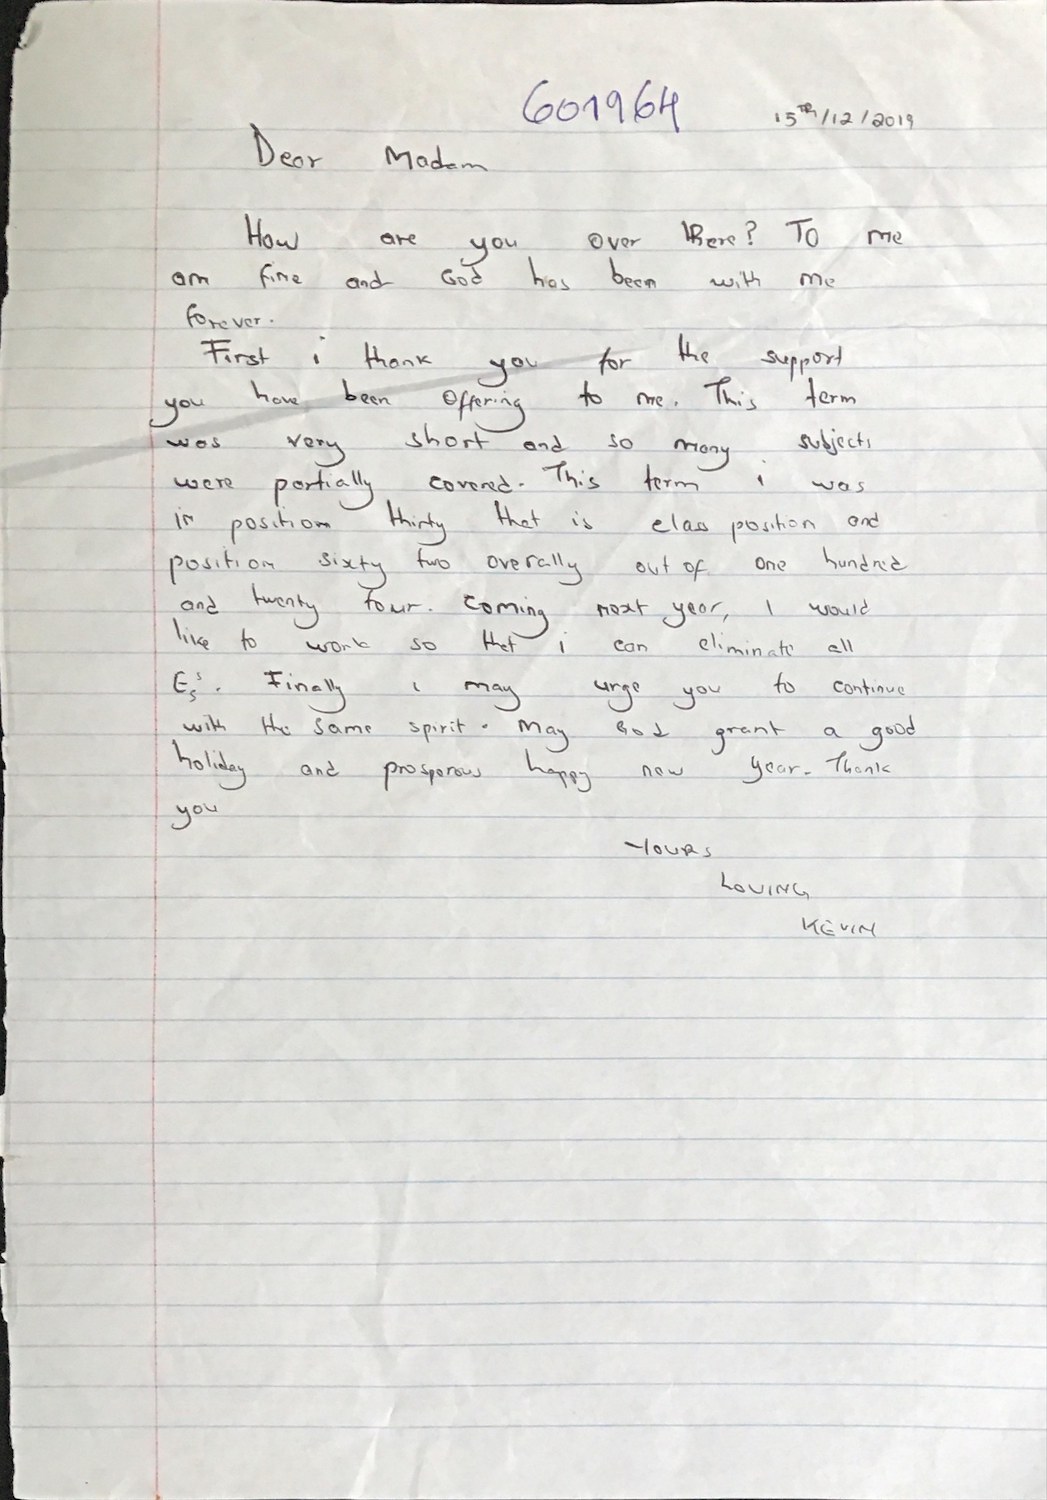 601964 15TH/12/2019
Dear Madam
How are you over there? To me
am fine and God has been with me
forever.
First i thank you for the support
you have been offering to me. This term
was very short and so many subjects
were partially covered. This term i was
in position thirty that is class position and
position sixty two overally out of one hundred
and twenty four. Coming next year, I would
like to work so that i can eliminate all
E's. Finally i may urge you to continue
with the same spirit. May God grant a good
holiday and prosperous happy new year. Thank
you
YOURS
LOVING
KEVIN